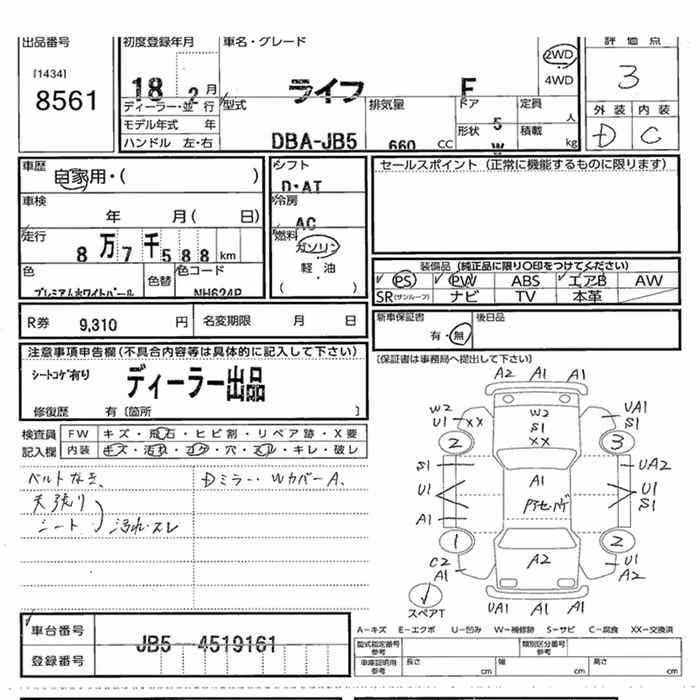 出品番号 初度登録年月 車名・グレード 評価点
[1434] 2WD 3
8561 18 2月 ライフ F 4WD
ディーラー・並行 型式 排気量 ドア 定員 人 外装 内装
モデル年式 年 5 D C
ハンドル 左・右 DBA-JB5 660 CC 形状 W 積載 kg
車歴 シフト セールスポイント(正常に機能するものに限ります)
自家用・( ) D・AT
車検 冷房
年 月( 日) AC
走行 燃料
8万7千588km ガソリン 装備品(純正品に限り〇印をつけてください)
色 色替 色コード 軽油 PS PW ABS エアB AW
プレミアムホワイトパール NH624P ( ) SR(サンルーフ) ナビ TV 本革
R券 9,310 円 名変期限 月 日 新車保証書 後日品
有・無
注意事項申告欄(不具合内容等は具体的に記入して下さい) [保証書は事務局へ提出して下さい)
シートコゲ有り ディーラー出品 A2 A1 A1
修復歴 有[箇所 ]
検査員 FW キズ・飛石・ヒビ割・リペア跡・X要
記入欄 内装 キズ・汚れ・コゲ・穴・スレ・キレ・破レ
W2 U1 XX W2 S1 XX UA1 S1
2 3
ベルトなき、 Dミラー・WカバーA、
天張り
シート 汚れ・スレ
S1 A1 UA2
U1 U1 S1
A1
1 2
C2 A1 A2 U1 A2
スペアT UA1 A1 A1
A-キズ E-エクボ U-凹み W-補修跡 S-サビ C-腐食 XX-交換済
車台番号 JB5-4519161 型式指定番号 参考 類別区分番号 参考
登録番号 車庫証明用 参考 長さ cm 幅 cm 高さ cm